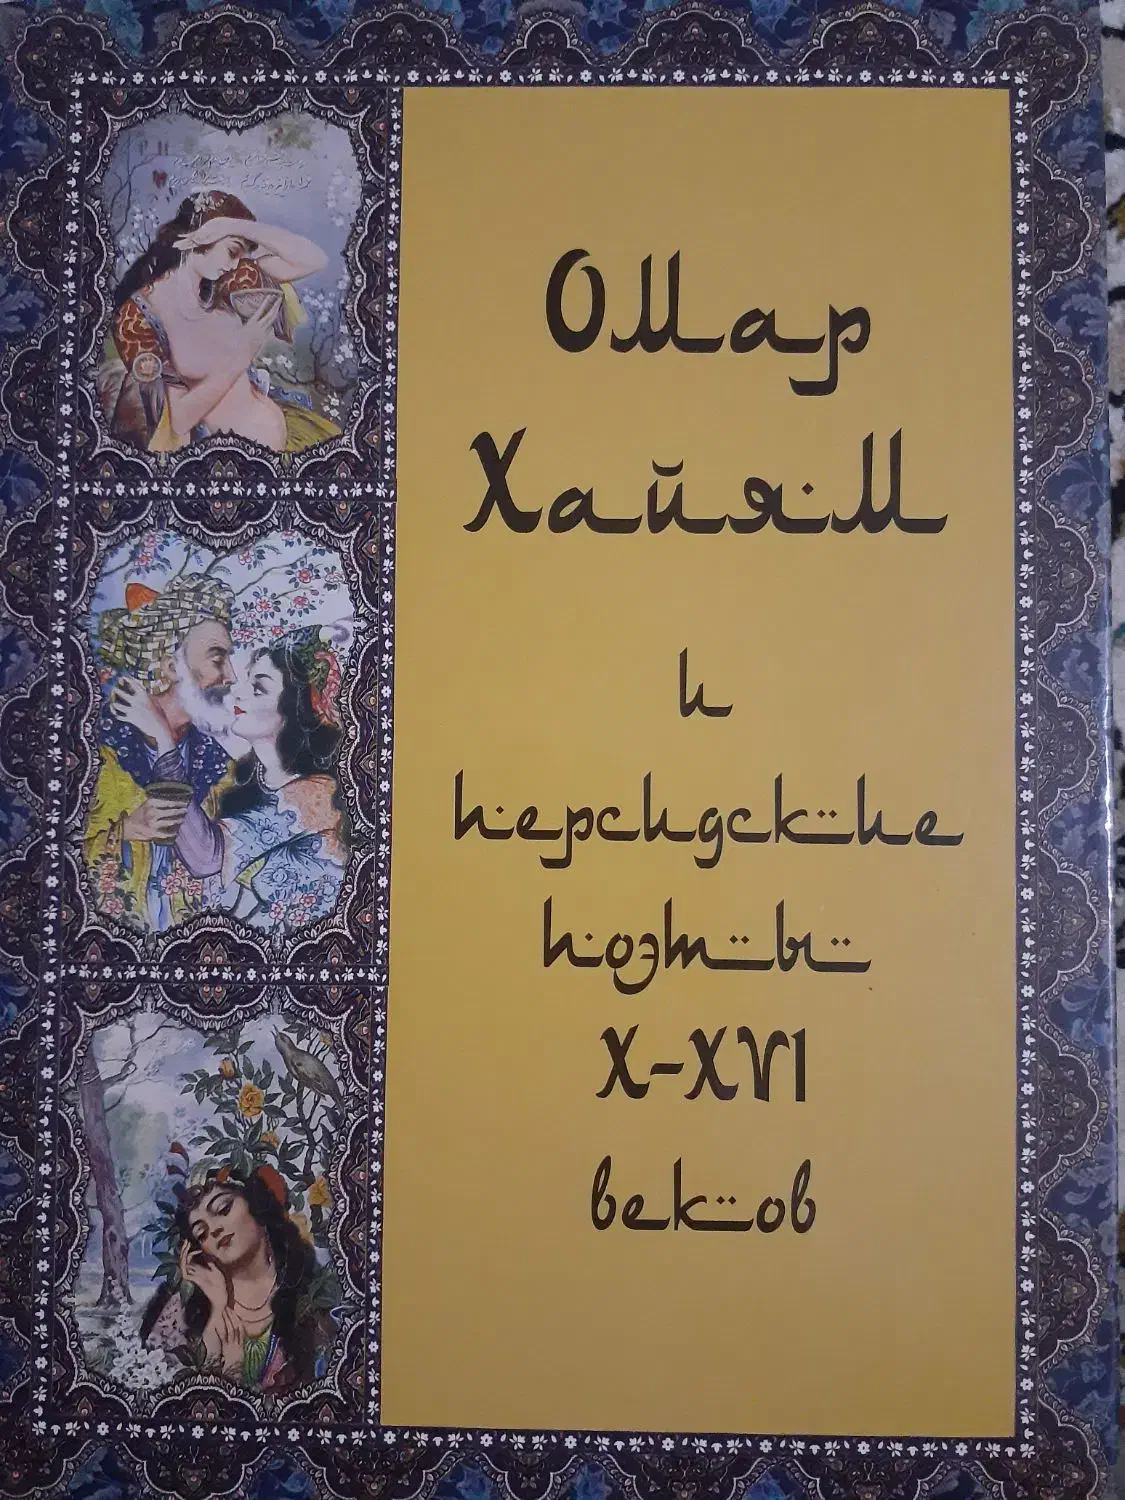 Омар
Хайям
и
персидские
поэты
X-XVI
веков